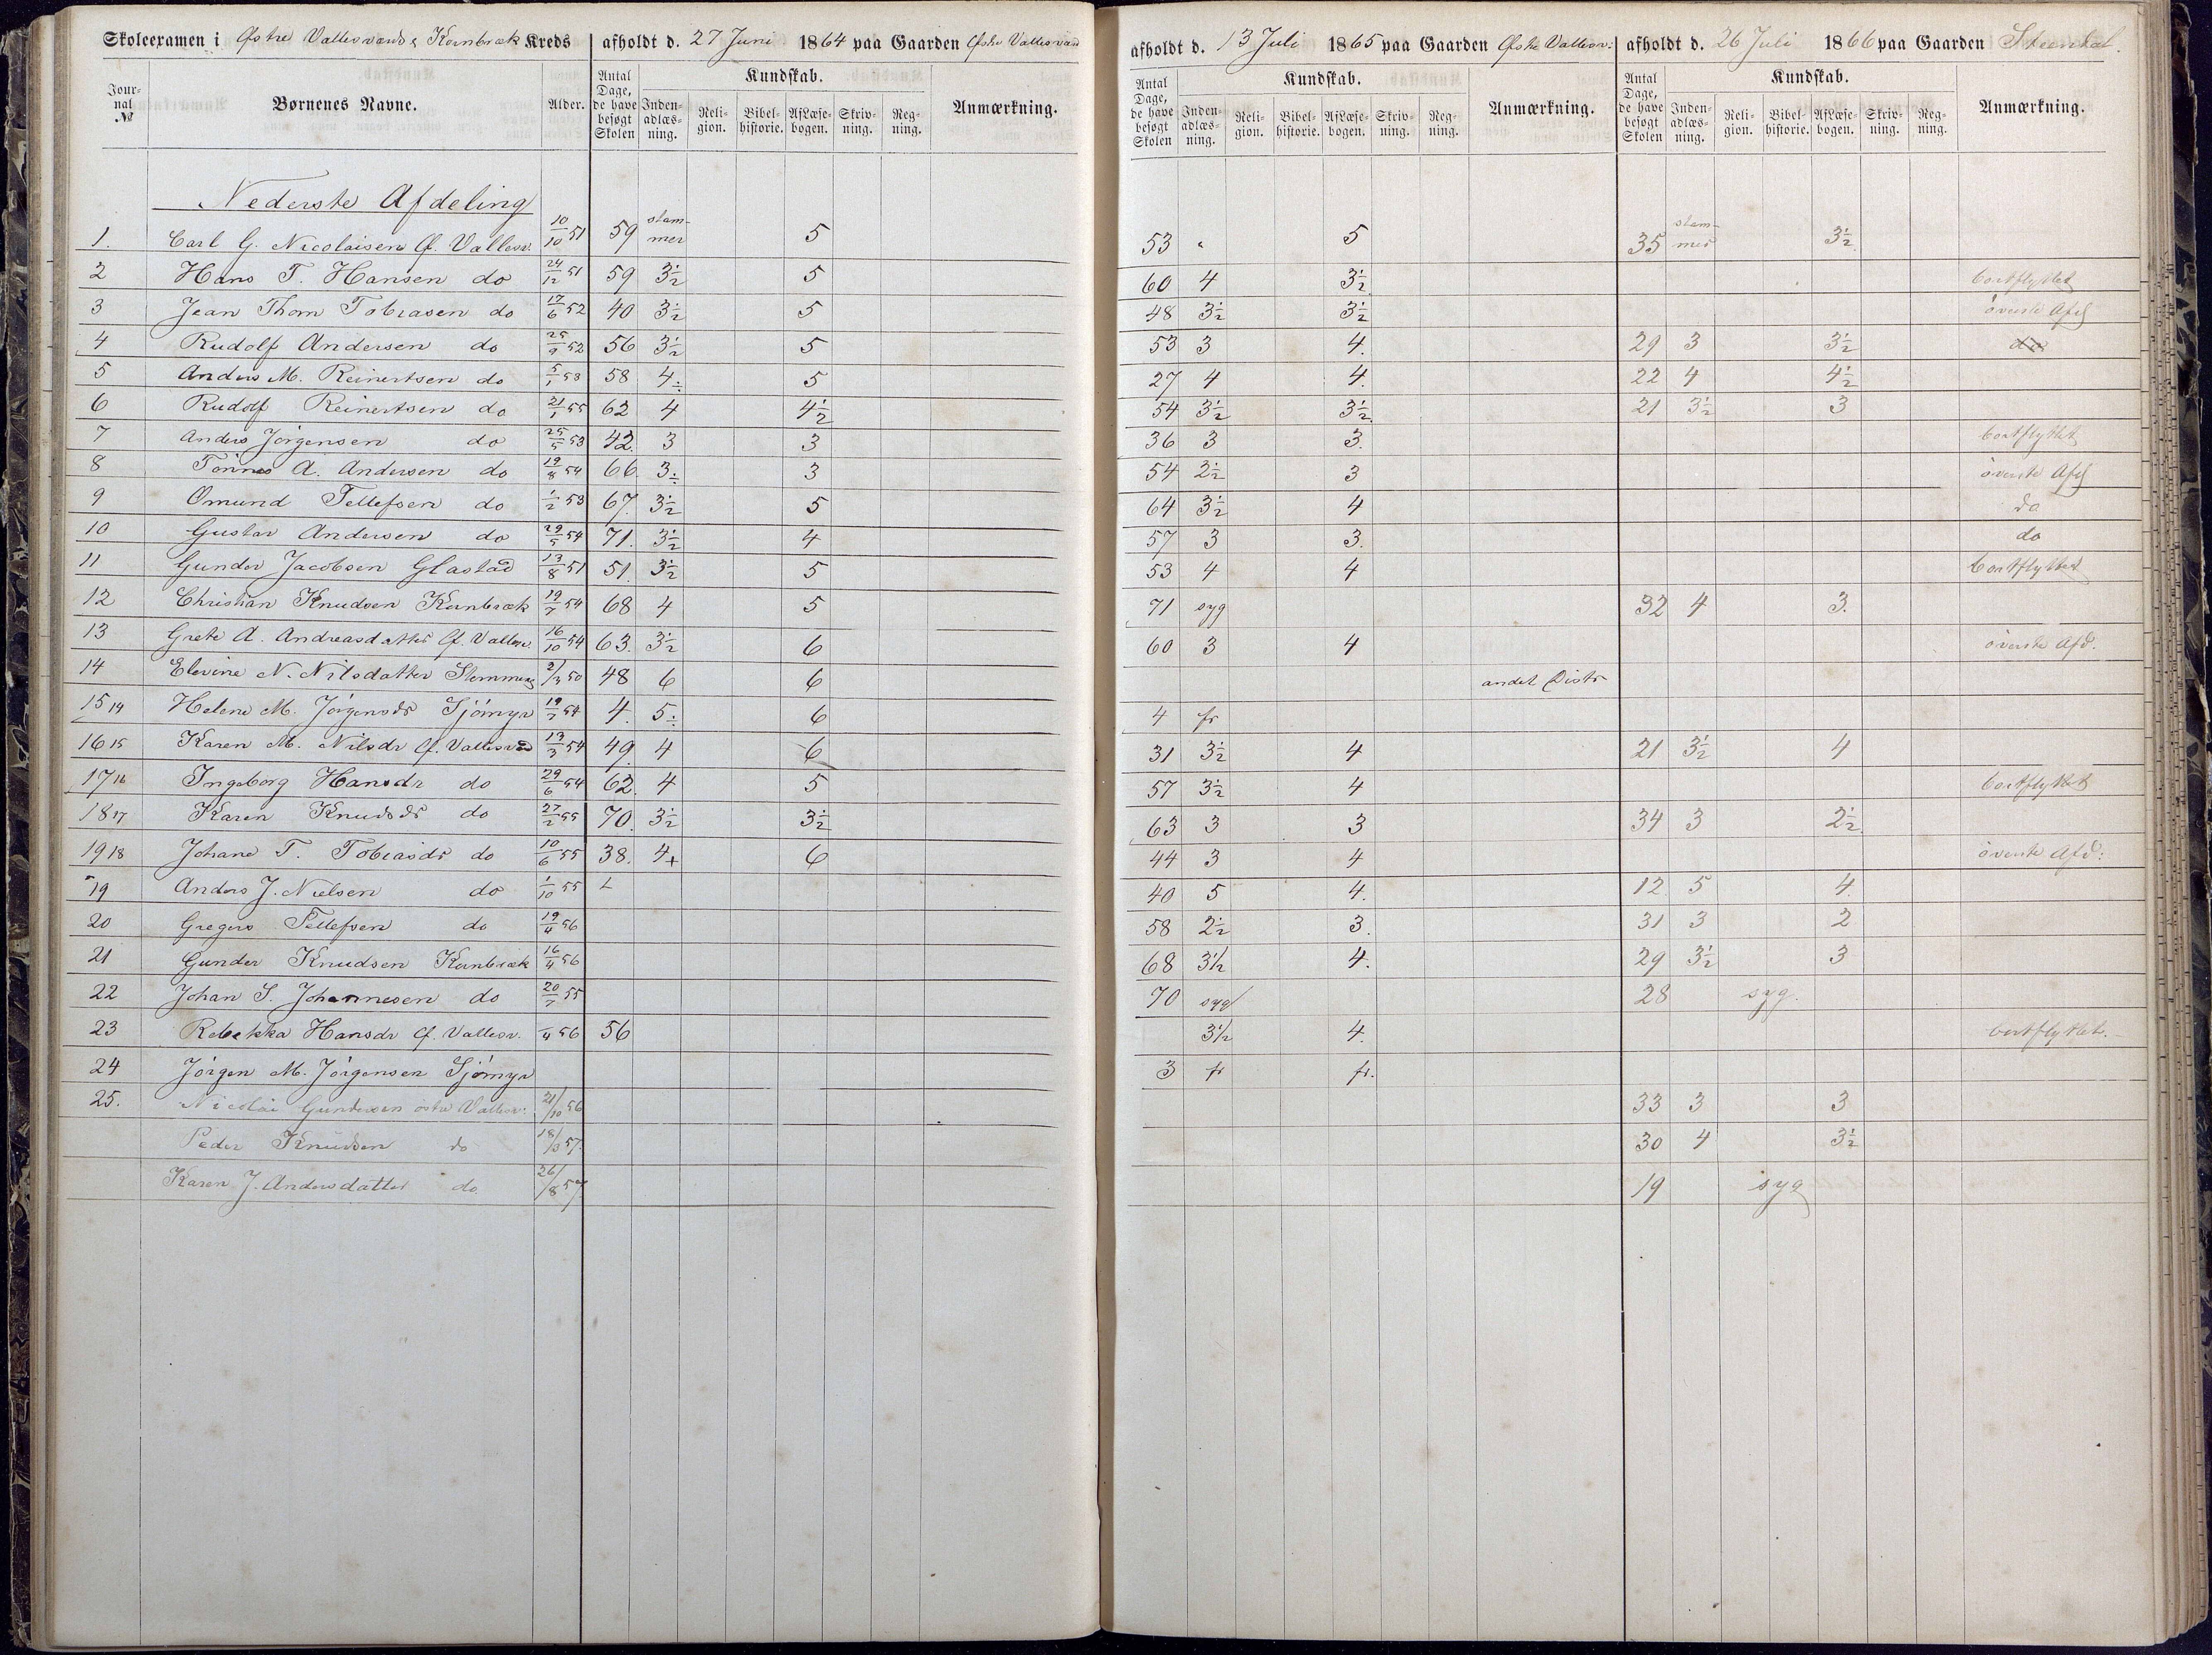 Skoleexamen i Østre Vallesværd & Kornbræk Kreds
afholdt d. 27 Juni 1864 paa Gaarden Østre Vallesværd
afholdt d. 13 Juli 1865 paa Gaarden Østre Vallesv:
afholdt d. 26 Juli 1866 paa Gaarden
Journal № Børnenes Navne. Alder. Antal Dage, de have besøgt Skolen Kundskab. Inden-adlæs-ning. Reli-gion. Bibel-historie. Af Læse-bogen. Skriv-ning. Reg-ning. Anmærkning.
Antal Dage, de have besøgt Skolen Kundskab. Inden-adlæs-ning. Reli-gion. Bibel-historie. Af Læse-bogen. Skriv-ning. Reg-ning. Anmærkning.
Antal Dage, de have besøgt Skolen Kundskab. Inden-adlæs-ning. Reli-gion. Bibel-historie. Af Læse-bogen. Skriv-ning. Reg-ning. Anmærkning.
Nederste Afdeling
1. Carl G. Nicolaisen Ø. Vallesv. 10/10 51 59 stam-mer 5 53 " 5 35 stam-mer 3½
2 Hans T. Hansen do 24/12 51 59 3½ 5 60 4 3½ bortflyttet
3 Jean Thom Tobiasen do 17/6 52 40 3½ 5 48 3½ 3½ överste Afd
4 Rudolf Andersen do 25/9 52 56 3½ 5 53 3 4. 29 3 3½ do
5 Anders M. Reinertsen do 5/1 53 58 4÷ 5 27 4 4. 22 4 4½
6 Rudolf Reinertsen do 21/1 55 62 4 4½ 54 3½ 3½ 21 3½ 3
7 Anders Jörgensen do 25/5 53 42. 3 3 36 3 3. bortflyttet
8 Tönnes A. Andersen do 19/8 54 66. 3÷ 3 54 2½ 3 överste Afd
9 Omund Tellefsen do 1/2 53 67. 3½ 5 64 3½ 4 do
10 Gustav Andersen do 29/5 54 71. 3½ 4 57 3 3. do
11 Gunder Jacobsen Glastad 13/8 51 51. 3½ 5 53 4 4 bortflyttet
12 Christian Knudsen Kornbræk 19/7 54 68 4 5 71 syg 32 4 3.
13 Grete A. Andreasdatter Ø. Vallesv. 16/10 54 63. 3½ 6 60 3 4 överste Afd.
14 Elevine N. Nilsdatter 2/3 50 48 6 6 andet Distr
15 14 Helene M. Jörgensdr Sjömyr 19/7 54 4. 5÷ 6 4 fr
16 15 Karen M. Nilsdr Ø. Vallesværd 13/3 54 49. 4 6 31 3½ 4 21 3½ 4
17 16 Ingeborg Hansdr do 29/6 54 62. 4 5 57 3½ 4 bortflyttet
18 17 Karen Knudsdr do 27/2 55 70. 3½ 3½ 63 3 3 34 3 2½
19 18 Johane T. Tobiasdr do 10/6 55 38. 4+ 6 44 3 4 överste Afd:
19 Anders J. Nielsen do 1/10 55 40 5 4. 12. 5 4.
20 Gregers Tellefsen do 19/4 56 58 2½ 3. 31 3 2
21 Gunder Knudsen Kornbræk 16/4 56 68 3½ 4. 29 3½ 3
22 Johan S. Johannesen do 20/7 55 70 syg 28 syg.
23 Rebekka Hansdr Ø. Vallesv. /4 56 56 3½ 4. bortflyttet.
24 Jörgen M. Jörgensen Sjömyr 3 fr fr.
25. Nicolai Gundersen östre Vallesv: 21/10 56 33 3 3
Peder Knudsen do 18/3 57. 30 4 3½
Karen J. Andersdatter do. 26/8 57 19 syg